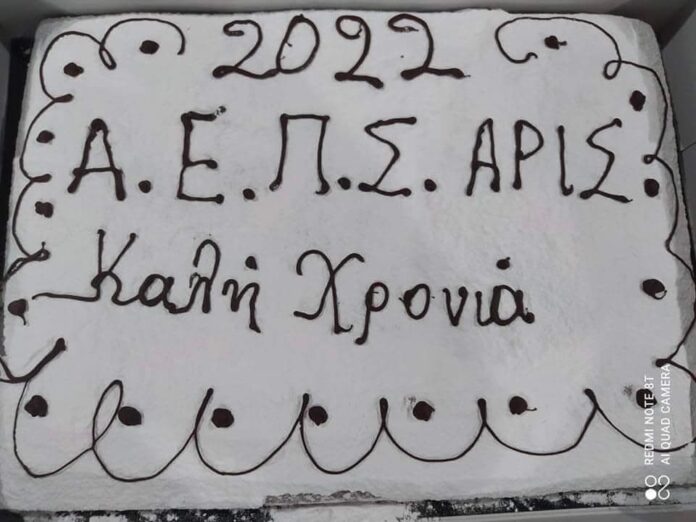 2022
Α.Ε.Π.Σ. ΑΡΙΣ
Καλή Χρονιά
REDMI NOTE 8T
AI QUAD CAMERA